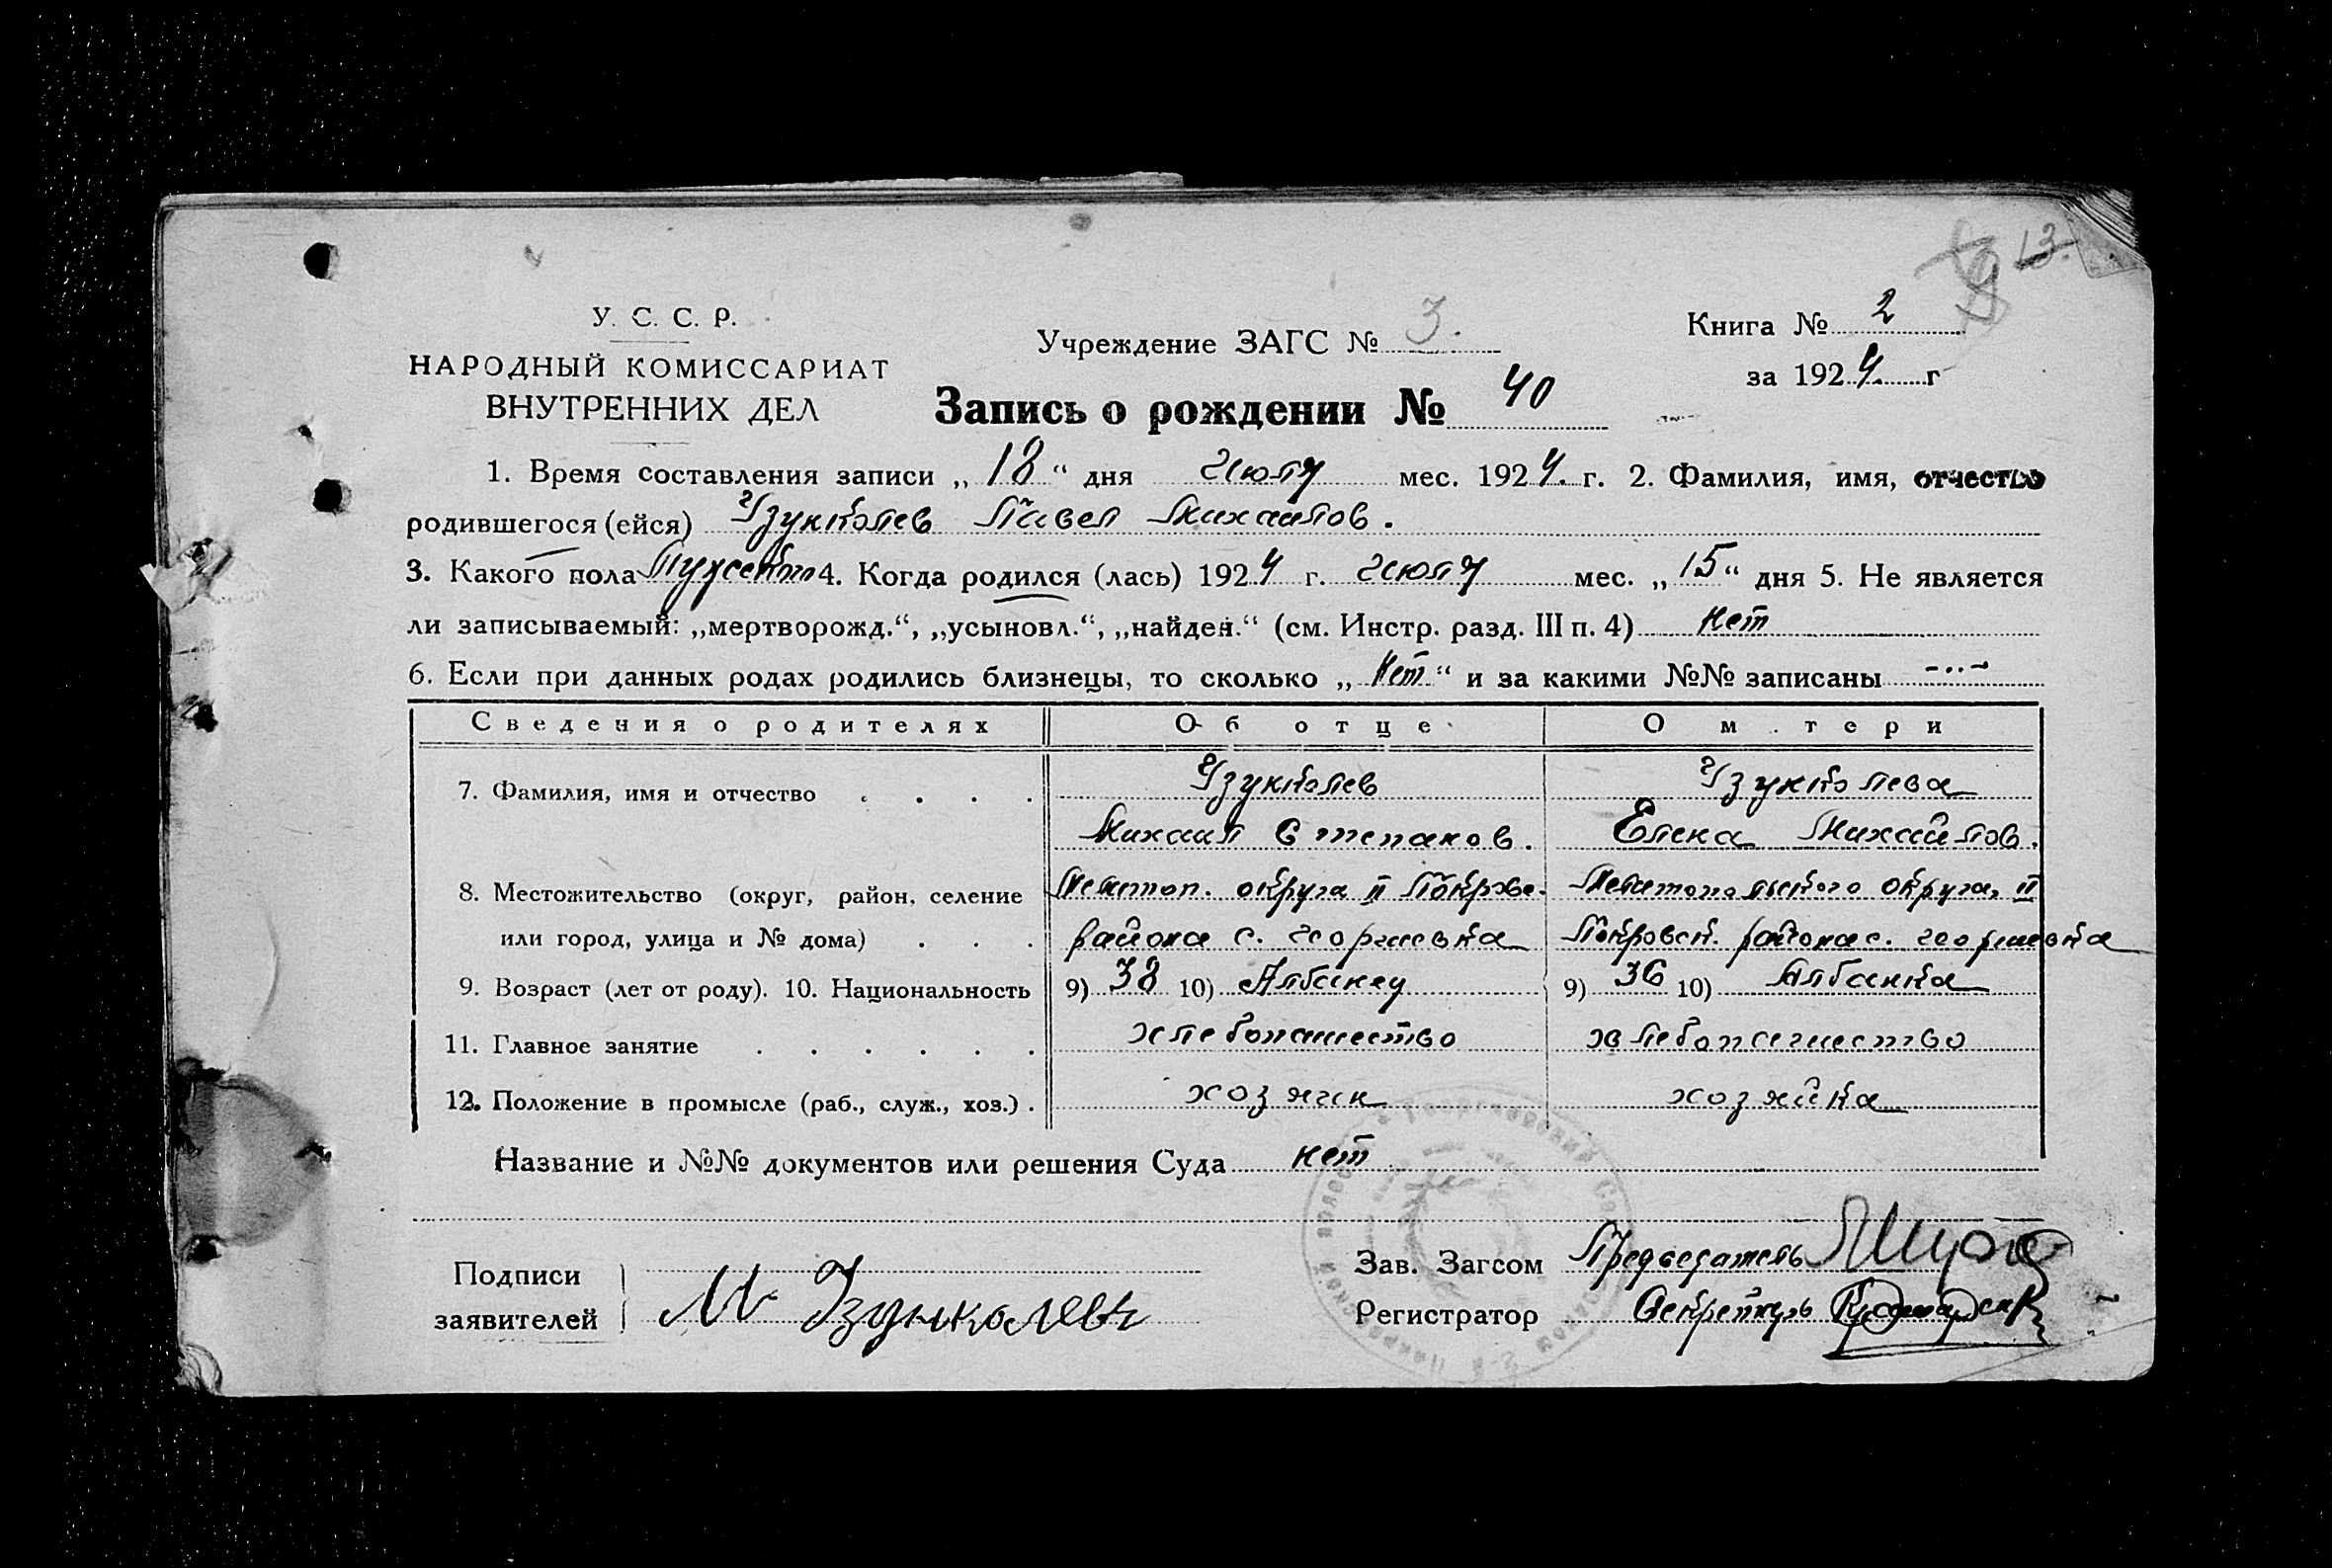 13.
У. С. С. Р.
НАРОДНЫЙ КОМИССАРИАТ
ВНУТРЕННИХ ДЕЛ
Учреждение ЗАГС № 3.
Книга № 2
за 1924. г
Запись о рождении № 40
1. Время составления записи „18“ дня Июля мес. 1924. г. 2. Фамилия, имя, отчество
родившегося (ейся) Узунколев Павел Михайлов.
3. Какого пола Мужского 4. Когда родился (лась) 1924 г. Июля мес. „15“ дня 5. Не является
ли записываемый: „мертворожд.“, „усыновл.“, „найден.“ (см. Инстр. разд. III п. 4) нет
6. Если при данных родах родились близнецы, то сколько „Нет“ и за какими №№ записаны
Сведения о родителях Об отце О м тери
7. Фамилия, имя и отчество Узунколев Узунколева
Михаил Степанов. Елена Михайлов.
8. Местожительство (округ, район, селение Мелитоп. округа II Покров. Мелитопольского округа, II
или город, улица и № дома) района с. Георгиевка Покровск. района с. Георгиевка
9. Возраст (лет от роду). 10. Национальность 9) 38 10) Албанец 9) 36 10) Албанка
11. Главное занятие хлебопашество хлебопашество
12. Положение в промысле (раб., служ., хоз.) хозяин хозяйка
Название и №№ документов или решения Суда нет
Подписи
заявителей М Узунколевъ
Зав. Загсом Председатель
Регистратор Секретарь